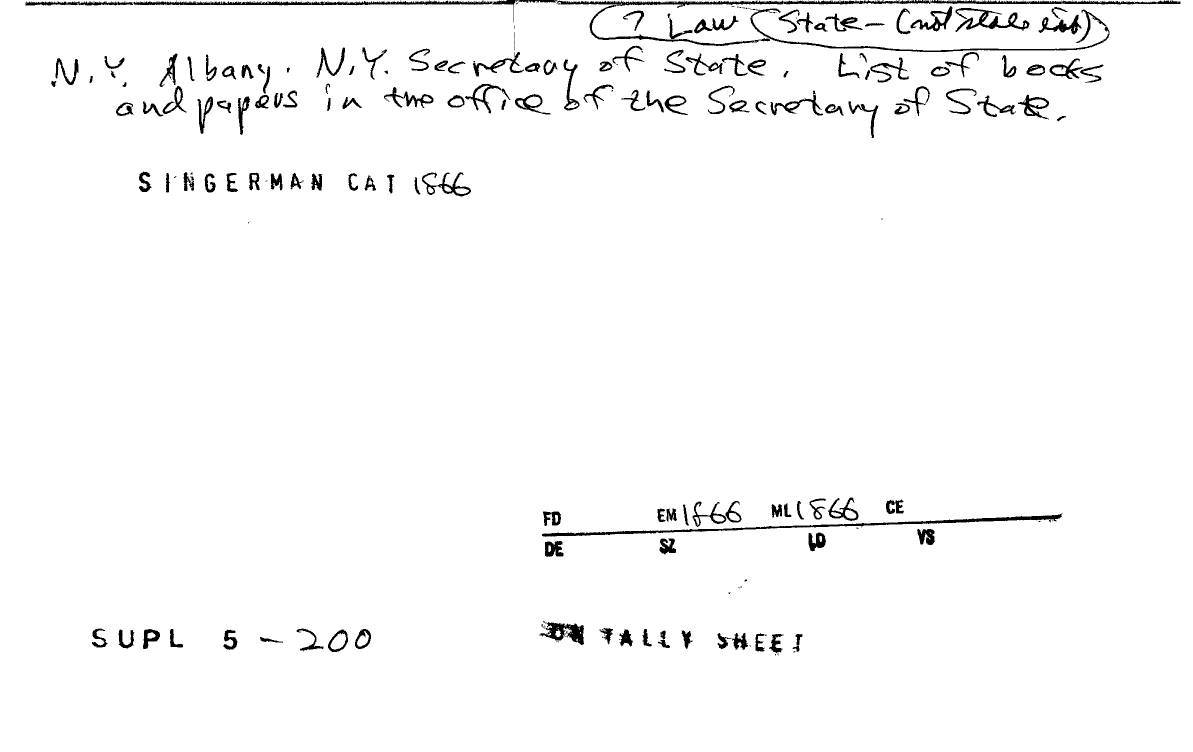 (? Law (State - (not
N.Y. Albany. N.Y. Secretary of State. List of books
and papers in the office of the Secretary of State.
SINGERMAN CAT 1866
FD EM 1866 ML 1866 CE
DE SZ LD VS
SUPL 5 - 200 ON TALLY SHEET